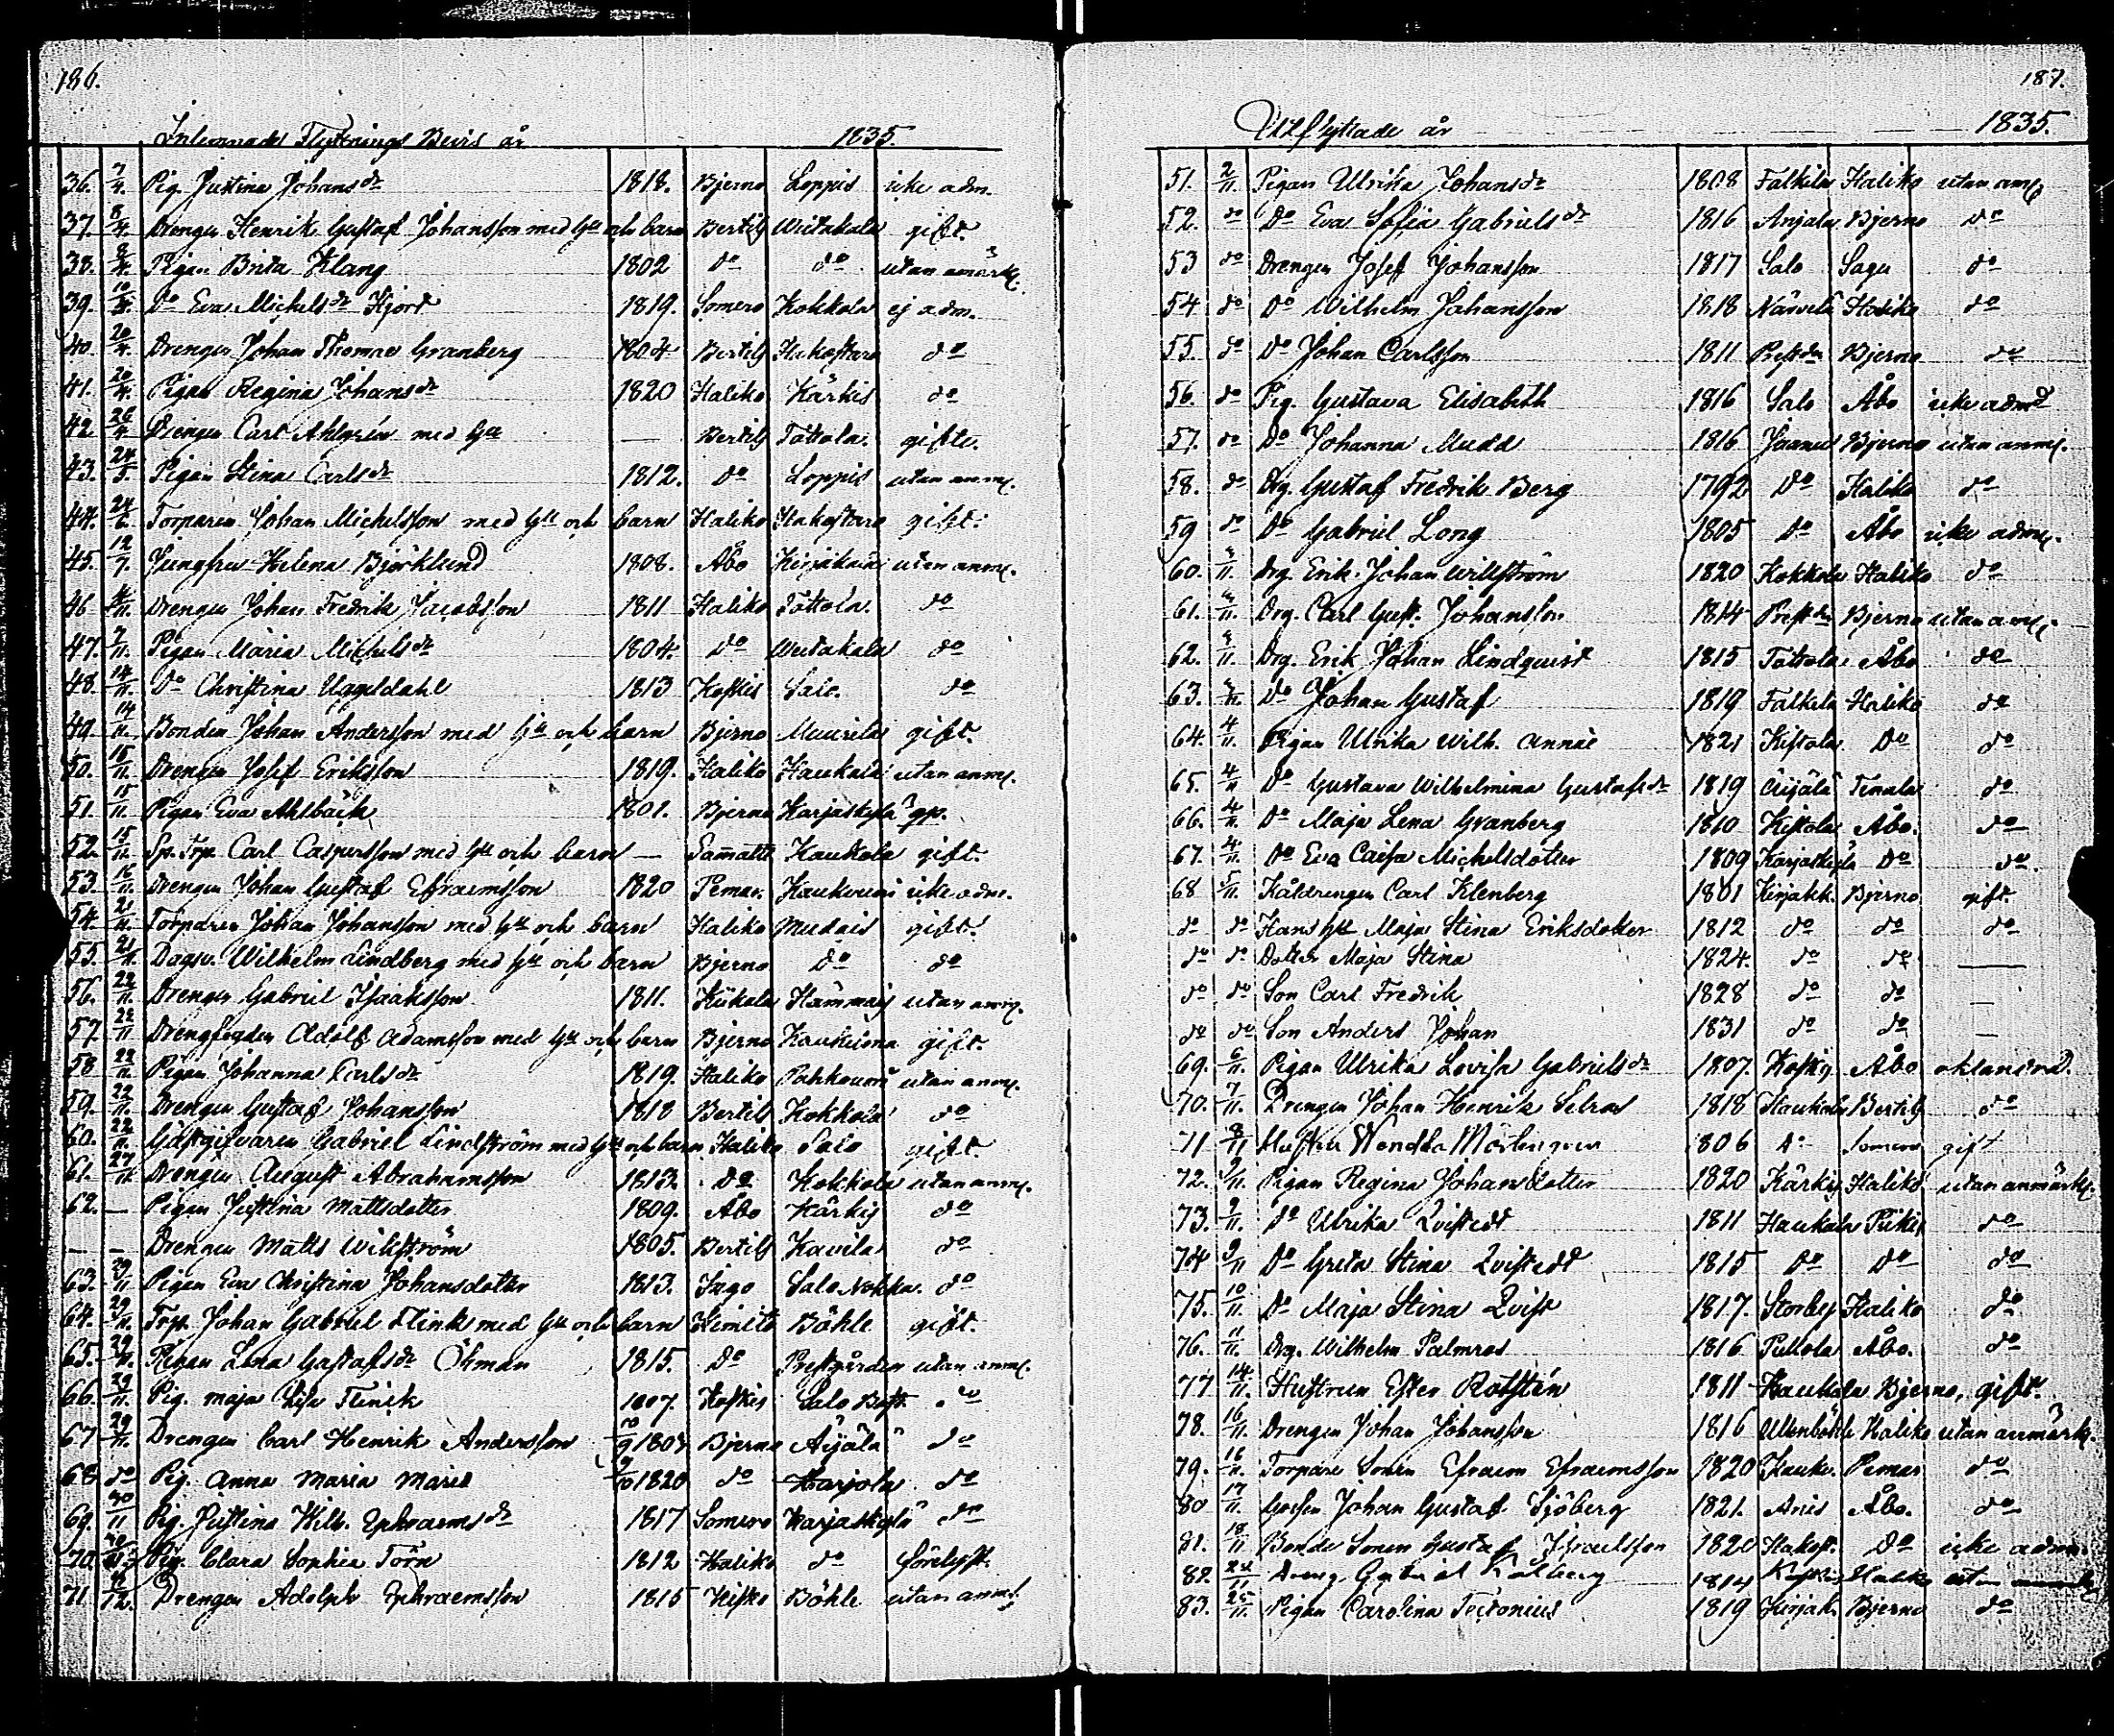 186.
Inlemnade Flyttnings Bevis år 1835.
36. 7/4. Pig. Justina Johansdr 1818. Bjerno Loppis icke adm.
37. 8/4. Drengen Henrik Gustaf Johansson med Hu och barn Bertils Wiitakala gift.
38. 8/4. Pigan Brita Klang 1802 do do utan anmärk.
39. 10/4. Do Eva Michelsdr Hjord 1819. Somero Kokkola ej adm.
40. 20/4. Drengen Johan Thomae Granberg 1804 Bertils Hakostaro do
41. 20/4. Pigan Regina Johansdr 1820 Haliko Kärkis do
42. 26/4. Drengen Carl Ahlgrén med Hu — Bertils Tottola gifte.
43. 24/5. Pigan Stina Carlsdr 1812. do Loppis utan anm.
44. 24/6. Torparen Johan Michelsson med Hu och barn Haliko Hakostaro gift.
45. 12/7. Jungfru Helena Björklund 1808. Åbo Kirjakkala utan anm.
46. 4/11. Drengen Johan Fredrik Jacobsson 1811 Haliko Tottola do
47. 7/11. Pigan Maria Michelsdr 1804. Do Wiitakala do
48. 14/11. Do Christina Uggeldahl 1813 Koskis Salo. do
49. 14/11. Bonden Johan Andersson med Hu och barn Bjerno Muurila gift.
50. 15/11. Drengen Josef Eriksson 1819. Haliko Haukala utan anm.
51. 15/11. Pigan Eva Ahlbäck 1801. Bjerno Karjaskylä
52. 15/11. Sp. Torp. Carl Caspersson med Hu och barn — Sammatti Kaukola gift.
53. 16/11. Drengen Johan Gustaf Efraemsson 1820 Pemar. Kaukvuori icke adm.
54. 21/11. Torparen Johan Johansson med Hu och barn Haliko Mudais gift.
55. 21/11. Dagsv. Wilhelm Lindberg med Hu och barn Bjerno Do do
56. 22/11. Drengen Gabriel Isaaksson 1811. Kiikala Hämmäis utan anm.
57. 22/11 Drengfogden Adolf Adamsson med Hu och barn Bjerno gift.
58 22/11. Pigan Johanna Carlsdr 1819. Haliko Pahkavuori utan anm.
59. 22/11. Drengen Gustaf Johansson 1818 Bertils Kokkola do
60. 22/11. Gästgifvaren Gabriel Lindström med Hu och barn Haliko Salo gift
61. 27/11. Drengen August Abrahamsson 1813. Do Kokkola utan anm.
62. — Pigan Justina Mattsdotter 1809. Åbo Kärkis do
— — Drengen Matts Wikström 1805. Bertils Kavila do
63. 29/11 Pigan Eva Christina Johansdotter 1813. Sago Salo Nokka. do
64. 29/11. Torp. Johan Gabriel Flink med Hu och barn Kimito Böhle gift.
65. 29/11. Pigan Lena Gustafsdr Öhman 1815. Do Prestgården utan anm.
66. 29/11. Pig. Maja Lisa Flinck 1807. Koskis Salo Bost. do
67 29/11. Drengen Carl Henrik Andersson 10/9 1808 Bjerno Äijälä do
68 do Pig. Anna Maria Marie 9/10 1820 do Karjola do
69. 30/11 Pig. Justina Wilh. Ephraemsdr 1817 Somero Karjaskylä do
70. Pig. Clara Sophia Törn 1812 Haliko do förelyst.
71. 12. Drengen Adolph Ephraemsson 1815 Kisko Böhle utan anm.
187.
Utflyttade år 1835.
51. 2/11. Pigan Ulrika Johansdr 1808 Falkila Haliko utan anm.
52. do Do Eva Sofia Gabrielsdr 1816 Anjala Bjerno do
53 do Drengen Josef Johansson 1817 Salo Sagu do
54 do Do Wilhelm Johansson 1818 Närvelä Haliko do
55. do Do Johan Carlsson 1811 Prestdn Bjerno do
56. do Pig. Gustava Elisabeth 1816 Salo Åbo icke admd
57. do Do Johanna Mudd 1816 Joensu Bjerno utan anm.
58. do Drg. Gustaf Fredrik Berg 1792 Do Haliko do
59 do Do Gabriel Long 1805 Do Åbo icke adm.
60. 4/11. Drg. Erik Johan Willström 1820 Kokkola Haliko do
61. 4/11. Drg. Carl Gust. Johansson 1814 Prestdn Bjerno utan anm.
62. 4/11. Drg. Erik Johan Lindquist 1815 Tottola Åbo do
63. 4/11. Do Johan Gustaf 1819 Falkila Haliko do
64. 4/11. Pigan Ulrika Wilh. Annie 1821 Kistola Do do
65. 4/11 Do Gustava Wilhelmina Gustafsdr 1819 Äijälä Tenala do
66. 4/11. Do Maja Lena Granberg 1810 Kistola Åbo. do
67. 4/11. Do Eva Caisa Michelsdotter 1809 Karjaskylä Do do.
68 5/11. Kåldrengen Carl Klenberg 1801 Kirjakk. Bjerno gift.
do do Hans Hu Maja Stina Eriksdotter 1812 do do do
do do Dotter Maja Stina 1824. do do —
do do Son Carl Fredrik 1828 do do —
do do Son Anders Johan 1831 do do —
69. 6/11. Pigan Ulrika Lovisa Gabrielsdr 1807. Koskis Åbo oklandrad.
70. 7/11. Drengen Johan Henrik Selros 1818 Haukala Bertils do
71 8/11 Hustru Wendla Mörtengren 1806 Do Somero gift
72. 9/11. Pigan Regina Johansdotter 1820 Kärkis Haliko utan anmärk.
73. 9/11. Do Ulrika Qvistedt 1811 Haukala Piikis do
74 9/11 Do Greta Stina Qvistedt 1815 Do Do do
75. 10/11. Do Maja Stina Qvist 1817. Storby Haliko do
76. 11/11. Drg. Wilhelm Palmros 1816 Pullola Åbo. do
77 14/11. Hustrun Ester Rotstén 1811 Haukala Bjerno, gift.
78. 16/11. Drengen Johan Johansson 1816 Ullenböhle Haliko utan anmärk.
79. 16/11. Torpare Sonen Efraem Efraemsson 1820 Kaukv. Pemar do
80 17/11. Gossen Johan Gustaf Sjöberg 1821. Anis Åbo. do
81. 18/11 Bonde Sonen Gustaf Israelsson 1820 Hakost. Do icke adm.
82. 24/11 Dreng Gabriel Kålberg 1814 Haliko utan
83. 25/11. Pigan Carolina Tectonius 1819 Kirjak. Bjerno do